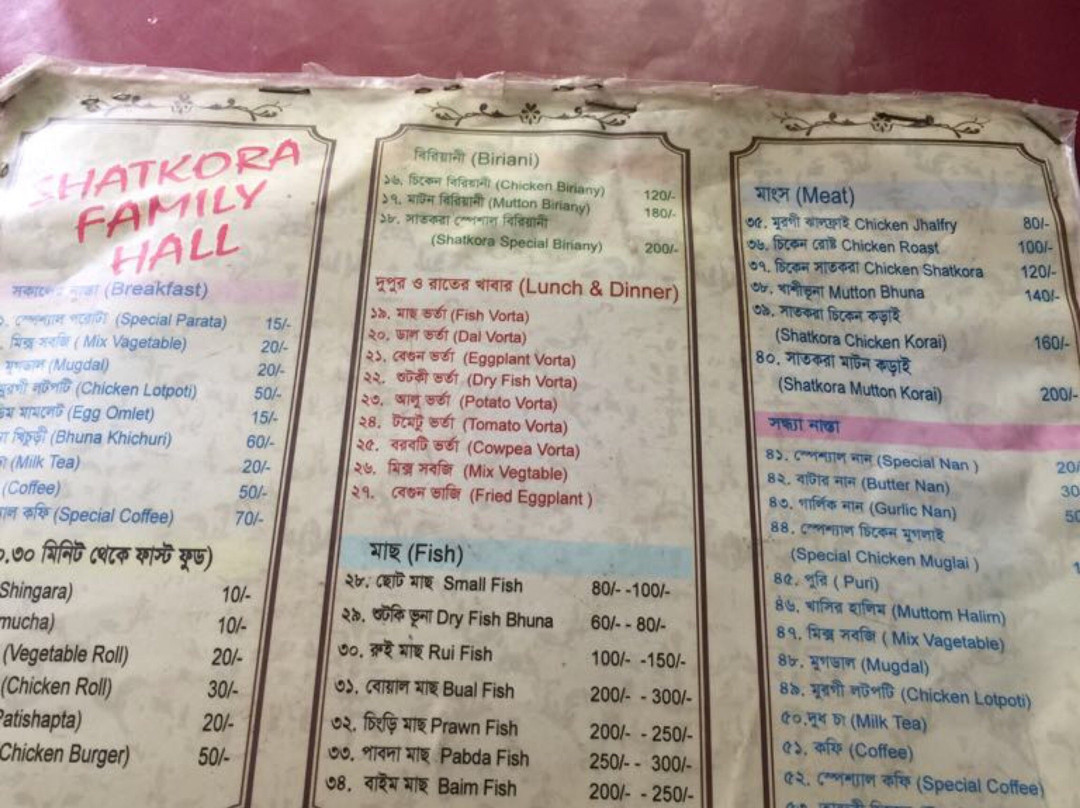 SHATKORA
FAMILY
HALL
সকালের নাস্তা (Breakfast)
স্পেশ্যাল পরোটা (Special Parata) 15/-
মিক্স সবজি (Mix Vagetable) 20/-
মুগডাল (Mugdal) 20/-
মুরগী লটপটি (Chicken Lotpoti) 50/-
মামলেট (Egg Omlet) 15/-
খিচুড়ী (Bhuna Khichuri) 60/-
(Milk Tea) 20/-
(Coffee) 50/-
কফি (Special Coffee) 70/-
৩০ মিনিট থেকে ফাস্ট ফুড)
Shingara) 10/-
mucha) 10/-
(Vegetable Roll) 20/-
(Chicken Roll) 30/-
Patishapta) 20/-
Chicken Burger) 50/-
বিরিয়ানী (Biriani)
১৬. চিকেন বিরিয়ানী (Chicken Biriany) 120/-
১৭. মাটন বিরিয়ানী (Mutton Biriany) 180/-
১৮. সাতকরা স্পেশাল বিরিয়ানী
(Shatkora Special Biriany) 200/-
দুপুর ও রাতের খাবার (Lunch & Dinner)
১৯. মাছ ভর্তা (Fish Vorta)
২০. ডাল ভর্তা (Dal Vorta)
২১. বেগুন ভর্তা (Eggplant Vorta)
২২. শুটকী ভর্তা (Dry Fish Vorta)
২৩. আলু ভর্তা (Potato Vorta)
২৪. টমেটু ভর্তা (Tomato Vorta)
২৫. বরবটি ভর্তা (Cowpea Vorta)
২৬. মিক্স সবজি (Mix Vegtable)
২৭. বেগুন ভাজি (Fried Eggplant )
মাছ (Fish)
২৮. ছোট মাছ Small Fish 80/- -100/-
২৯. শুটকি ভূনা Dry Fish Bhuna 60/- - 80/-
৩০. রুই মাছ Rui Fish 100/- -150/-
৩১. বোয়াল মাছ Bual Fish 200/- - 300/-
৩২. চিংড়ি মাছ Prawn Fish 200/- - 250/-
৩৩. পাবদা মাছ Pabda Fish 250/- - 300/-
৩৪. বাইম মাছ Baim Fish 200/- - 250/-
মাংস (Meat)
৩৫. মুরগী ঝালফ্রাই Chicken Jhalfry 80/-
৩৬. চিকেন রোষ্ট Chicken Roast 100/-
৩৭. চিকেন সাতকরা Chicken Shatkora 120/-
৩৮. খাশীভূনা Mutton Bhuna 140/-
৩৯. সাতকরা চিকেন কড়াই
(Shatkora Chicken Korai) 160/-
৪০. সাতকরা মাটন কড়াই
(Shatkora Mutton Korai) 200/-
সন্ধ্যা নাস্তা
৪১. স্পেশ্যাল নান (Special Nan ) 20/
৪২. বাটার নান (Butter Nan) 30
৪৩. গার্লিক নান (Gurlic Nan)
৪৪. স্পেশ্যাল চিকেন মুগলাই
(Special Chicken Muglai )
৪৫. পুরি ( Puri)
৪৬. খাসির হালিম (Muttom Halim)
৪৭. মিক্স সবজি ( Mix Vagetable)
৪৮. মুগডাল (Mugdal)
৪৯. মুরগী লটপটি (Chicken Lotpoti)
৫০.দুধ চা (Milk Tea)
৫১. কফি (Coffee)
৫২. স্পেশ্যাল কফি (Special Coffee)